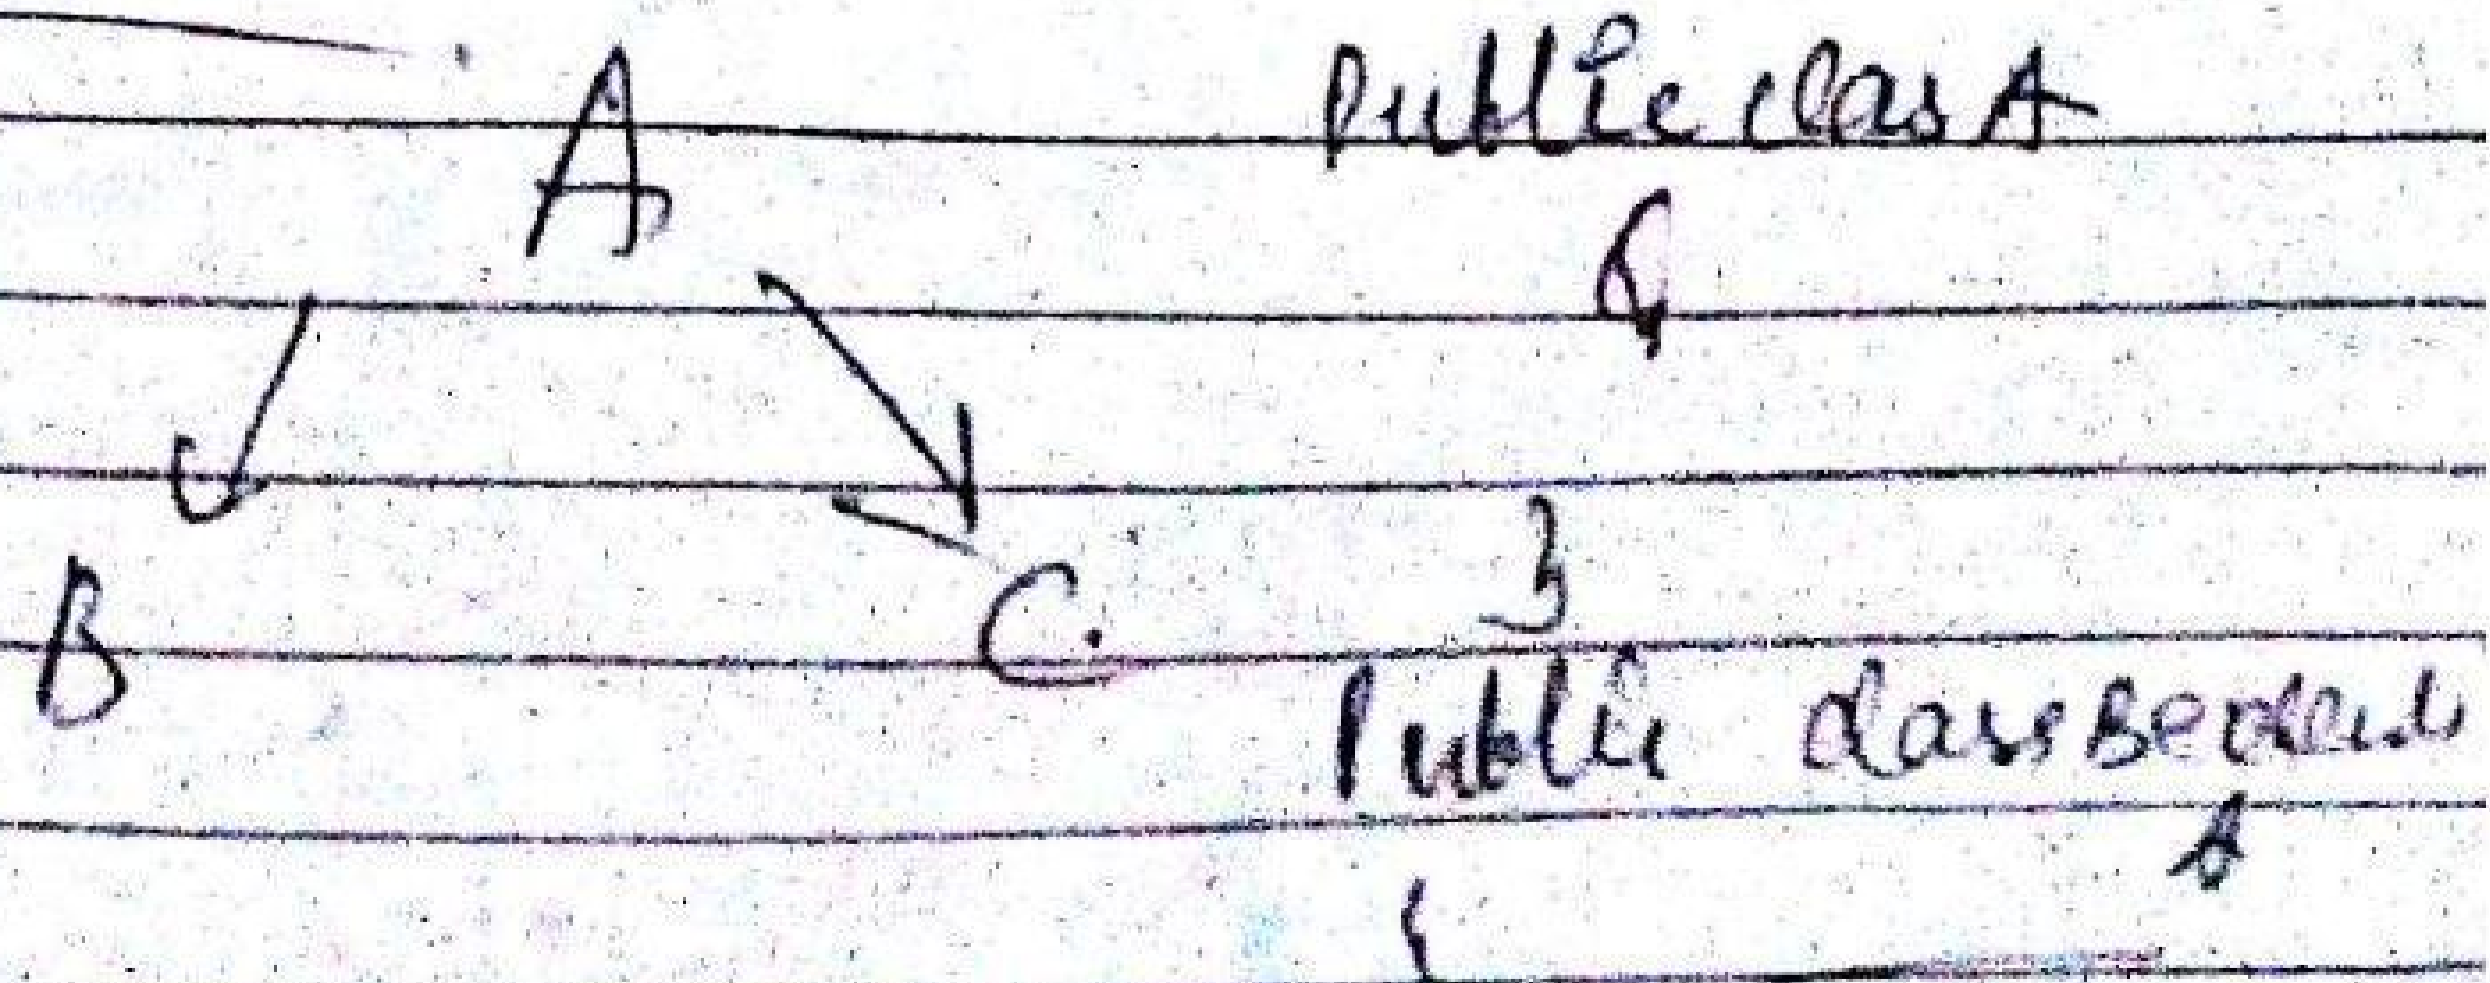 A
public clas A
{
}
B
C.
Public class B extends
A
{